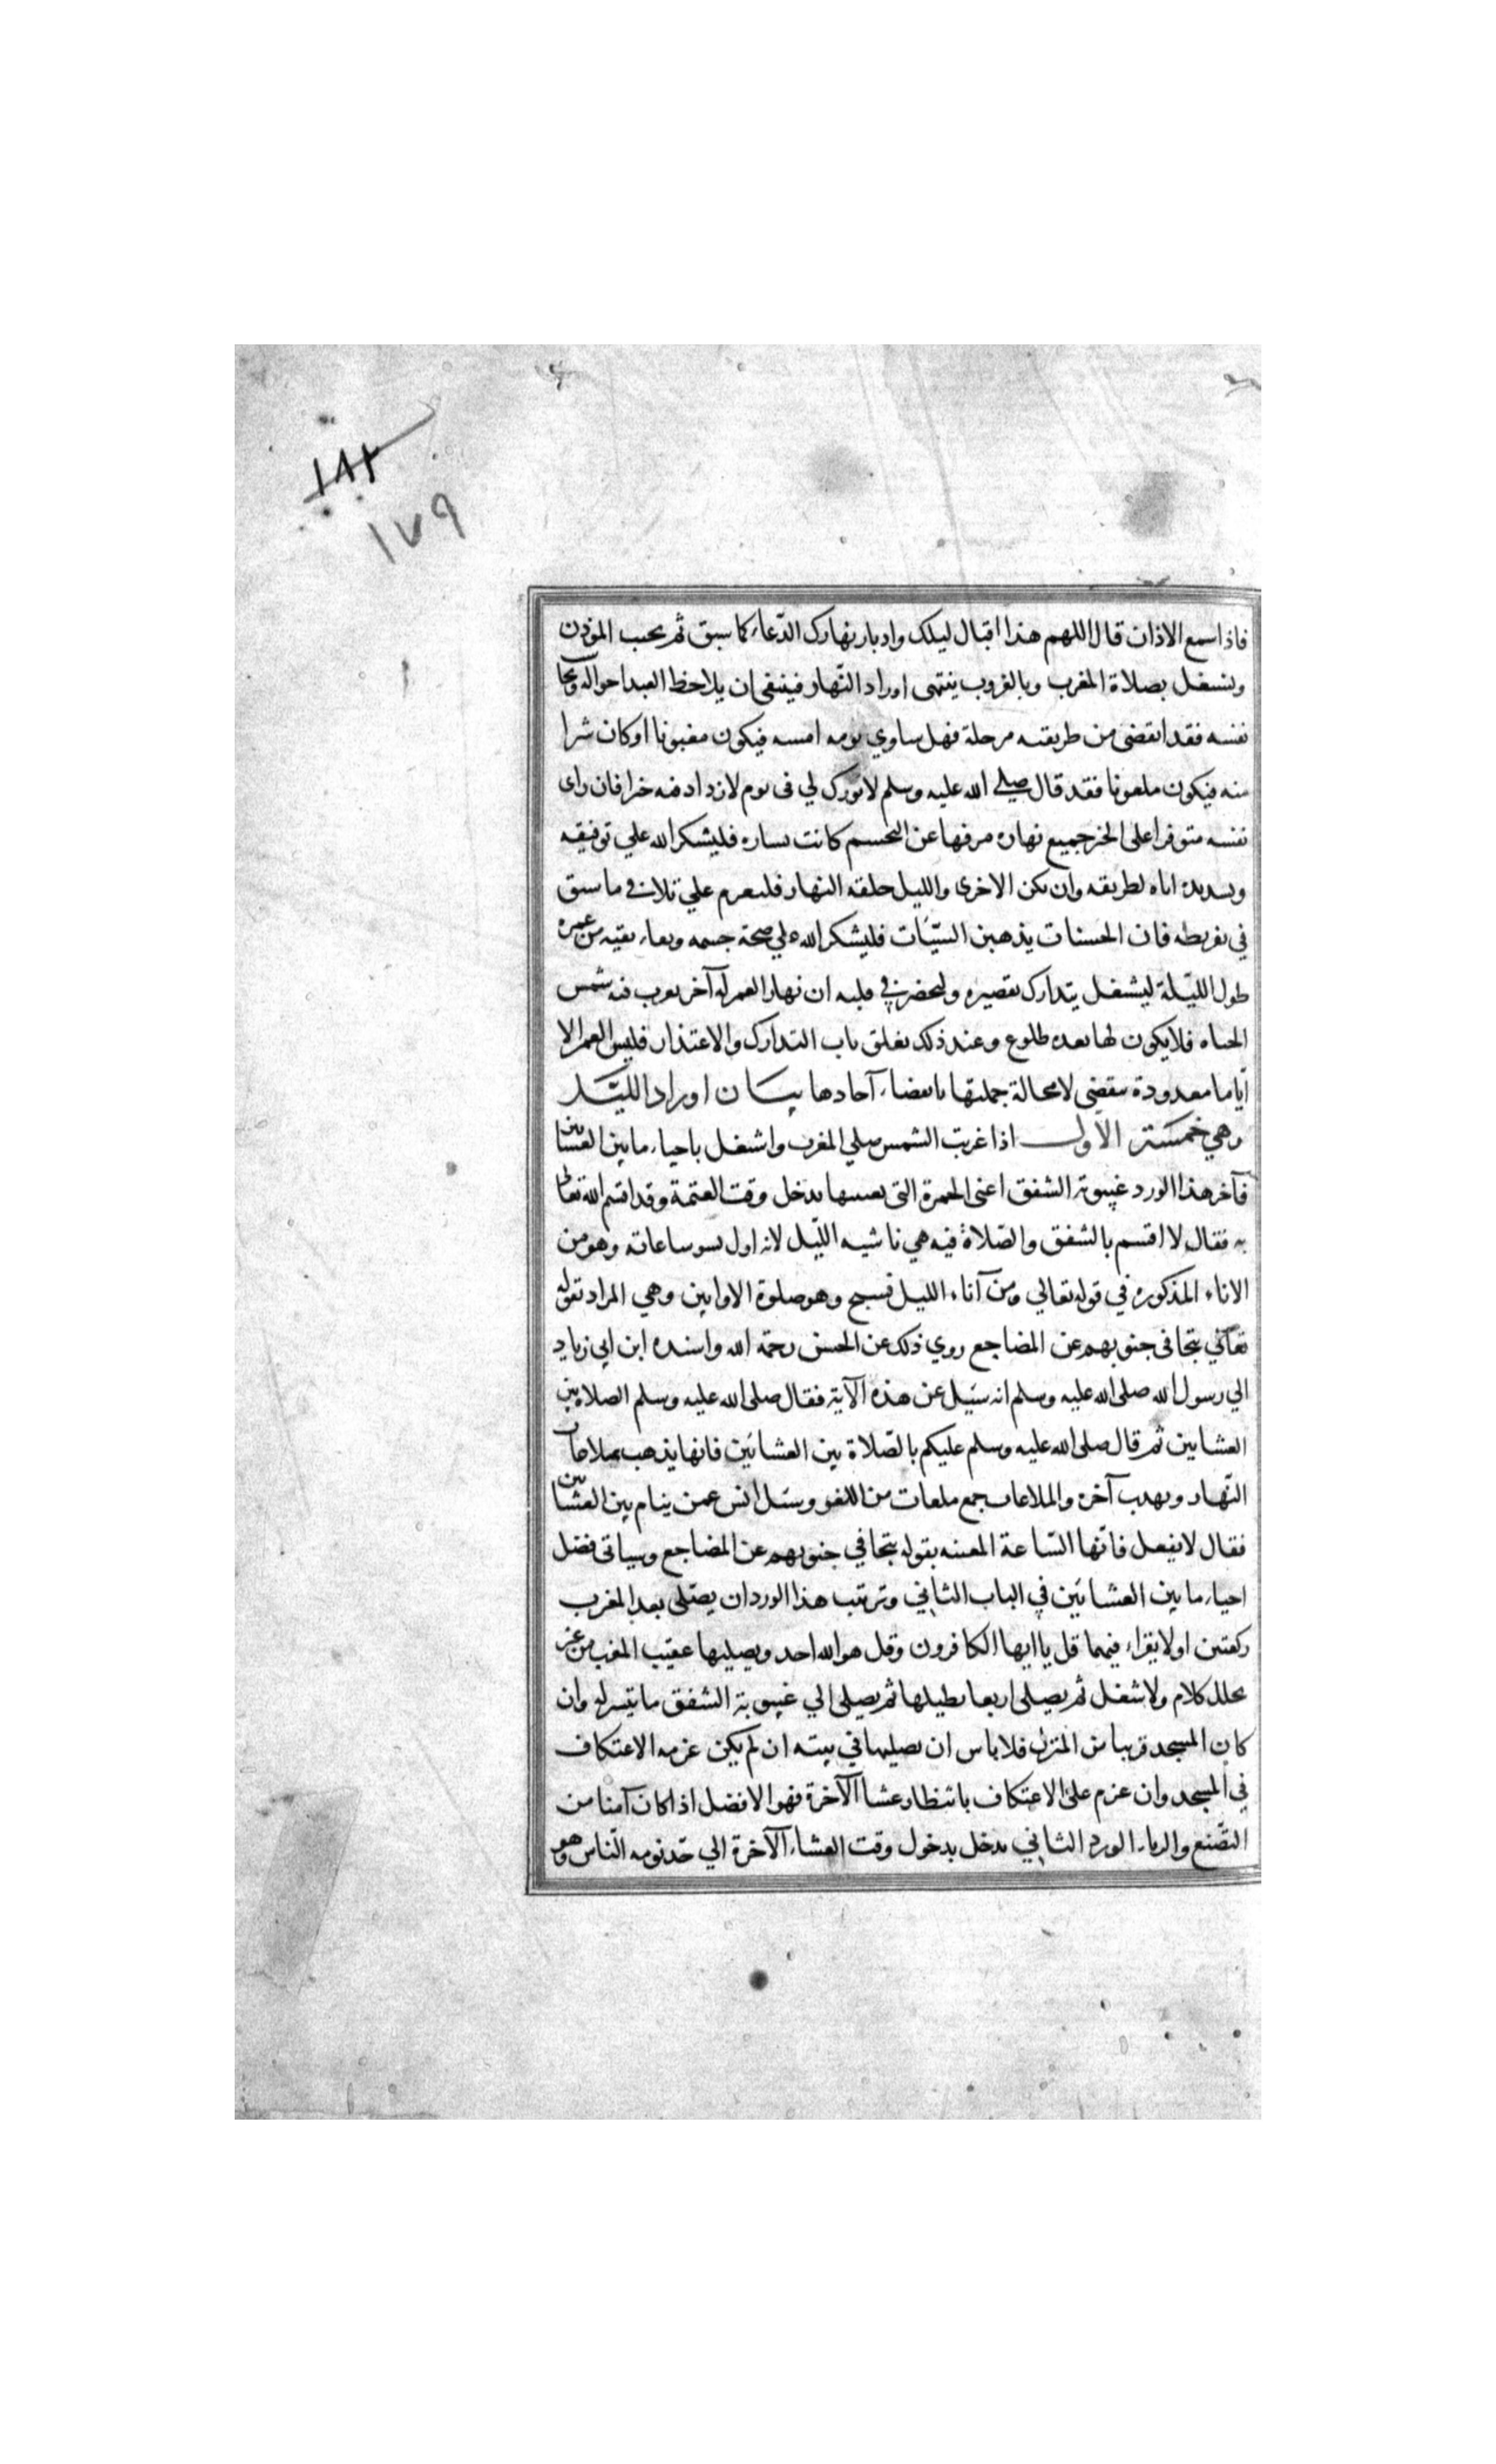 ١٨٢
١٧٩
فاذا سمع الاذان قال اللهم هذا اقبال ليلك وادبار نهارك الدّعاء كما سبق ثم يجيب المؤذن
ويشتغل بصلاة المغرب وبالغروب ينتهى اوراد النّهار فينبغى ان يلاحظ العبد احواله ويحا
نفسه فقد انقضى من طريقه مرحلة فهل ساوي يومه امسه فيكون مغبونا او كان شرا
منه فيكون ملعونا فقد قال صلى الله عليه وسلم لا بورك لي فى يوم لا ازداد فيه خيرا فان راى
نفسه متوفرا على الخير جميع نهاره مرفها عن التجشم كانت بشاره فليشكر الله علي توفيقه
وتسديده اياه لطريقه وان تكن الاخرى والليل خلفة النهار فليعزم علي تلافي ما سبق
في تفريطه فان الحسنات يذهبن السيّئات فليشكر الله علي صحة جسمه وبقاء بقيه من عمره
طول الليّلة ليشتغل بتدارك تقصيره وليحضر في قلبه ان نهار العمر له آخر تغرب فيه شمس
الحياه فلا يكون لها بعده طلوع وعند ذلك يغلق باب التدارك والاعتذار فليس العمر الا
أيّاما معدودة تنقضى لا محالة جملتها بانقضاء آحادها بيان اوراد الليّل
وهي خمسة الأول اذا غربت الشمس صلي المغرب واشتغل باحياء ما بين العشائين
فآخر هذا الورد غيبوبة الشفق اعنى الحمرة التى بغيبتها يدخل وقت العتمة وقد اقسم الله تعالى
به فقال لا اقسم بالشفق والصّلاة فيه هي ناشيه اللّيل لانه اول نشو ساعاته وهو من
الاناء المذكوره في قوله تعالي ومن آناء الليل فسبح وهو صلوة الاوابين وهي المراد بقوله
تعالي تتجافى جنوبهم عن المضاجع روي ذلك عن الحسن رحمة الله واسنده ابن ابي زياد
الي رسول الله صلى الله عليه وسلم انه سئيل عن هذه الآية فقال صلى الله عليه وسلم الصلاة بين
العشايين ثم قال صلى الله عليه وسلم عليكم بالصّلاة بين العشائين فانها يذهب بملاغات
النّهار وتهذب آخره والملاغات جمع ملغات من اللغو وسئل انس عمن ينام بين العشائين
فقال لا تفعل فانّها السّاعة المعنيه بقوله تتجافي جنوبهم عن المضاجع وسياتى فضل
احياء ما بين العشائين في الباب الثاني وترتيب هذا الورد ان يصلّى بعد المغرب
ركعتين اولا يقراء فيهما قل يا ايها الكافرون وقل هو الله احد ويصليها عقيب المغرب من غير
تخلل كلام ولا شغل ثم يصلى اربعا يطيلها ثم يصلى الي غيبوبة الشفق ما تيسر له وان
كان المسجد قريبا من المنزل فلا باس ان يصليها في بيته ان لم يكن عزمه الاعتكاف
في المسجد وان عزم على الاعتكاف بانتظار عشا الآخرة فهو الافضل اذا كان آمنا من
التصّنع والرياء الورد الثاني يدخل بدخول وقت العشاء الآخرة الي حّد نومه النّاس وهو